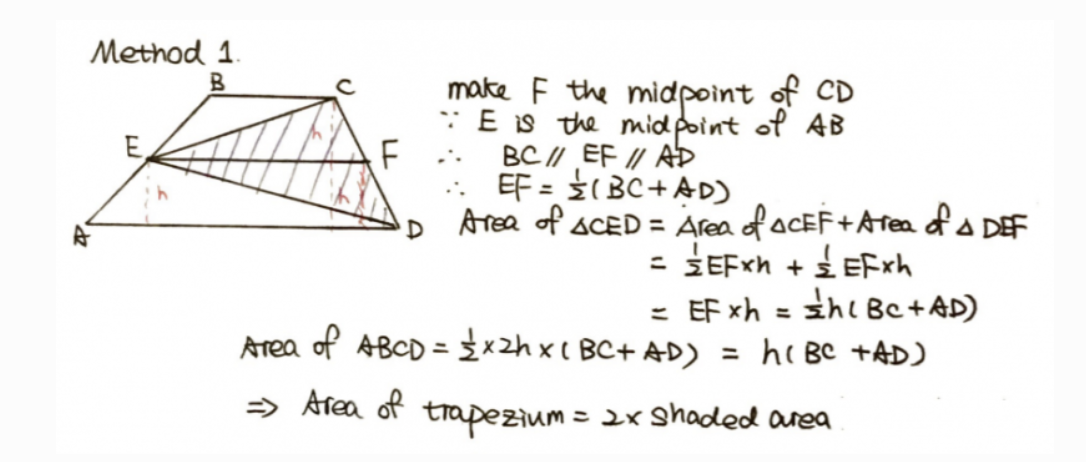 Method 1.
B
C
E
F
h
h
h
A
D
make F the midpoint of CD
∵ E is the midpoint of AB
∴ BC // EF // AD
∴ EF = 1/2 (BC + AD)
Area of △CED = Area of △CEF + Area of △DEF
= 1/2 EF×h + 1/2 EF×h
= EF×h = 1/2 h (BC + AD)
Area of ABCD = 1/2 × 2h × (BC + AD) = h (BC + AD)
⇒ Area of trapezium = 2× Shaded area